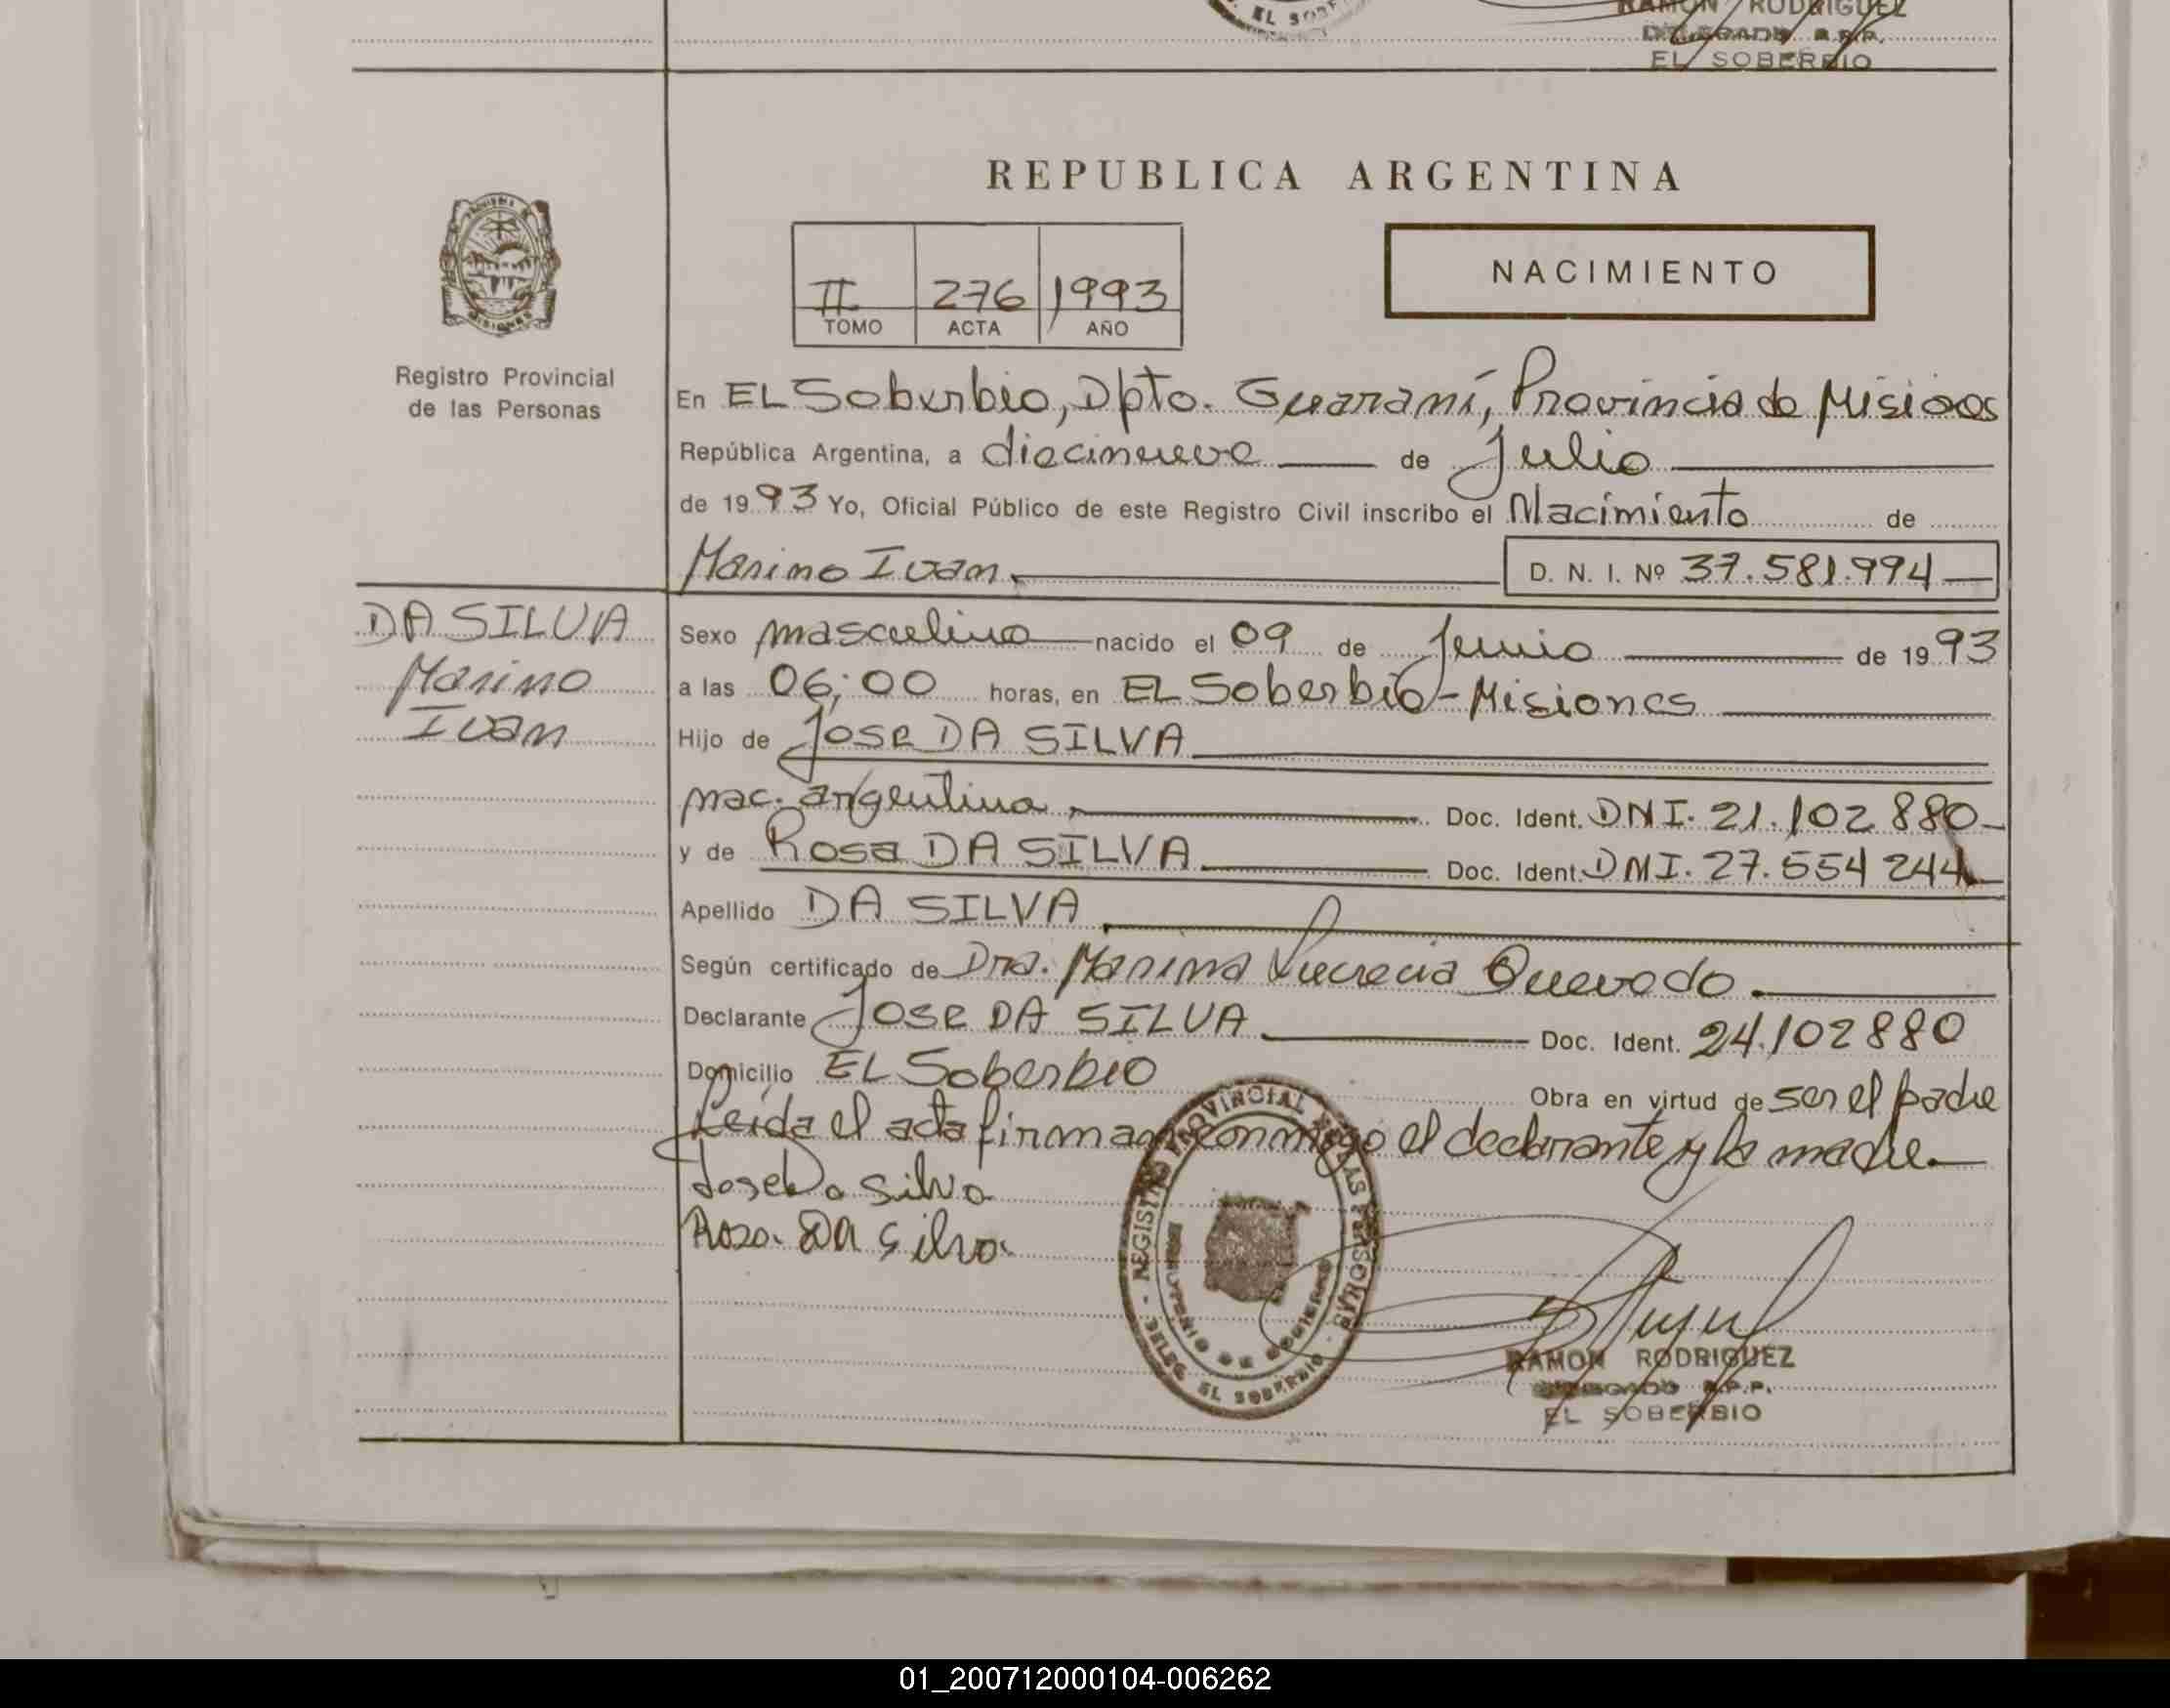 EL SOBER
RAMON RODRIGUEZ
DELEGADO R.P.P.
EL SOBERBIO
REPUBLICA ARGENTINA
II 276 1993
TOMO ACTA AÑO
NACIMIENTO
Registro Provincial
de las Personas
En EL Soberbio, Dpto. Guaraní, Provincia de Misiones
República Argentina, a diecinueve de Julio
de 1993 Yo, Oficial Público de este Registro Civil inscribo el Nacimiento de
Marino Ivan. D. N. I. Nº 37.581.994
DA SILVA
Marino
Ivan
Sexo masculino nacido el 09 de Junio de 1993
a las 06;00 horas, en EL Soberbio - Misiones
Hijo de Jose DA SILVA
nac. argentina, Doc. Ident. DNI. 21.102 880-
y de Rosa DA SILVA Doc. Ident. DNI. 27.554 244
Apellido DA SILVA
Según certificado de Dra. Marina Lucrecia Quevedo.
Declarante Jose DA SILVA Doc. Ident. 24.102880
Domicilio EL Soberbio
Obra en virtud de ser el padre
Leida el acta firman conmigo el declarante y la madre.
Jose Da Silva
Rosa Da Silva
REGISTRO PROVINCIAL DE LAS PERSONAS
MINISTERIO DE GOBIERNO
DELEG. EL SOBERBIO
RAMON RODRIGUEZ
DELEGADO R.P.P.
EL SOBERBIO
01_200712000104-006262